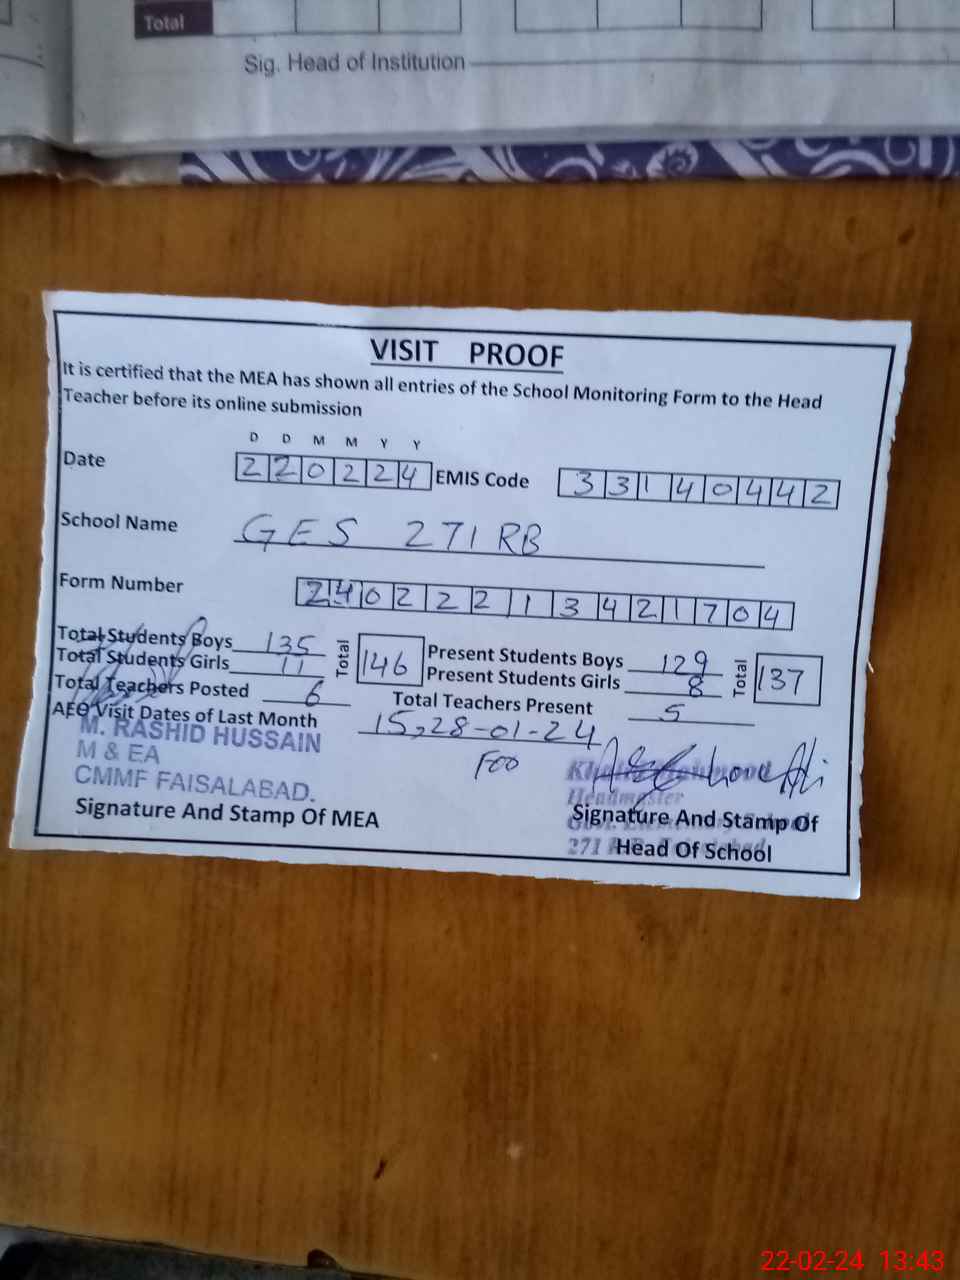 Total
Sig. Head of Institution
VISIT PROOF
It is certified that the MEA has shown all entries of the School Monitoring Form to the Head
Teacher before its online submission
D D M M Y Y
Date 220224 EMIS Code 33140442
School Name GES 271 RB
Form Number 24022213421704
Total Students Boys 135 Total 146 Present Students Boys 129 Total 137
Total Students Girls 11 Present Students Girls 8
Total Teachers Posted 6 Total Teachers Present 5
AEO Visit Dates of Last Month 15,28-01-24
M. RASHID HUSSAIN
M & EA
CMMF FAISALABAD.
Headmaster
Signature And Stamp Of MEA
Signature And Stamp Of
271
Head Of School
22-02-24 13:43